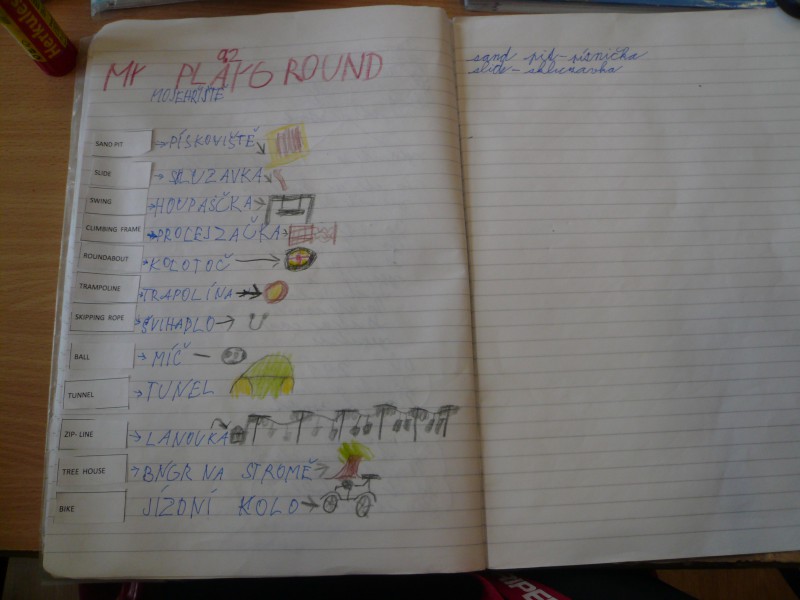 Herkules
MY PLAYGROUND
MOJEHŘIŠTĚ
SAND PIT PÍSKOVIŠTĚ
SLIDE SKLUZAVKA
SWING HOUPAČKA
CLIMBING FRAME PROLEJZAČKA
ROUNDABOUT KOLOTOČ
TRAMPOLINE TRAPOLÍNA
SKIPPING ROPE ŠVIHADLO
BALL MÍČ
TUNNEL TUNEL
ZIP-LINE LANOVKA
TREE HOUSE NA STROMĚ
BIKE JÍZDNÍ KOLO
sand pit -
slide -